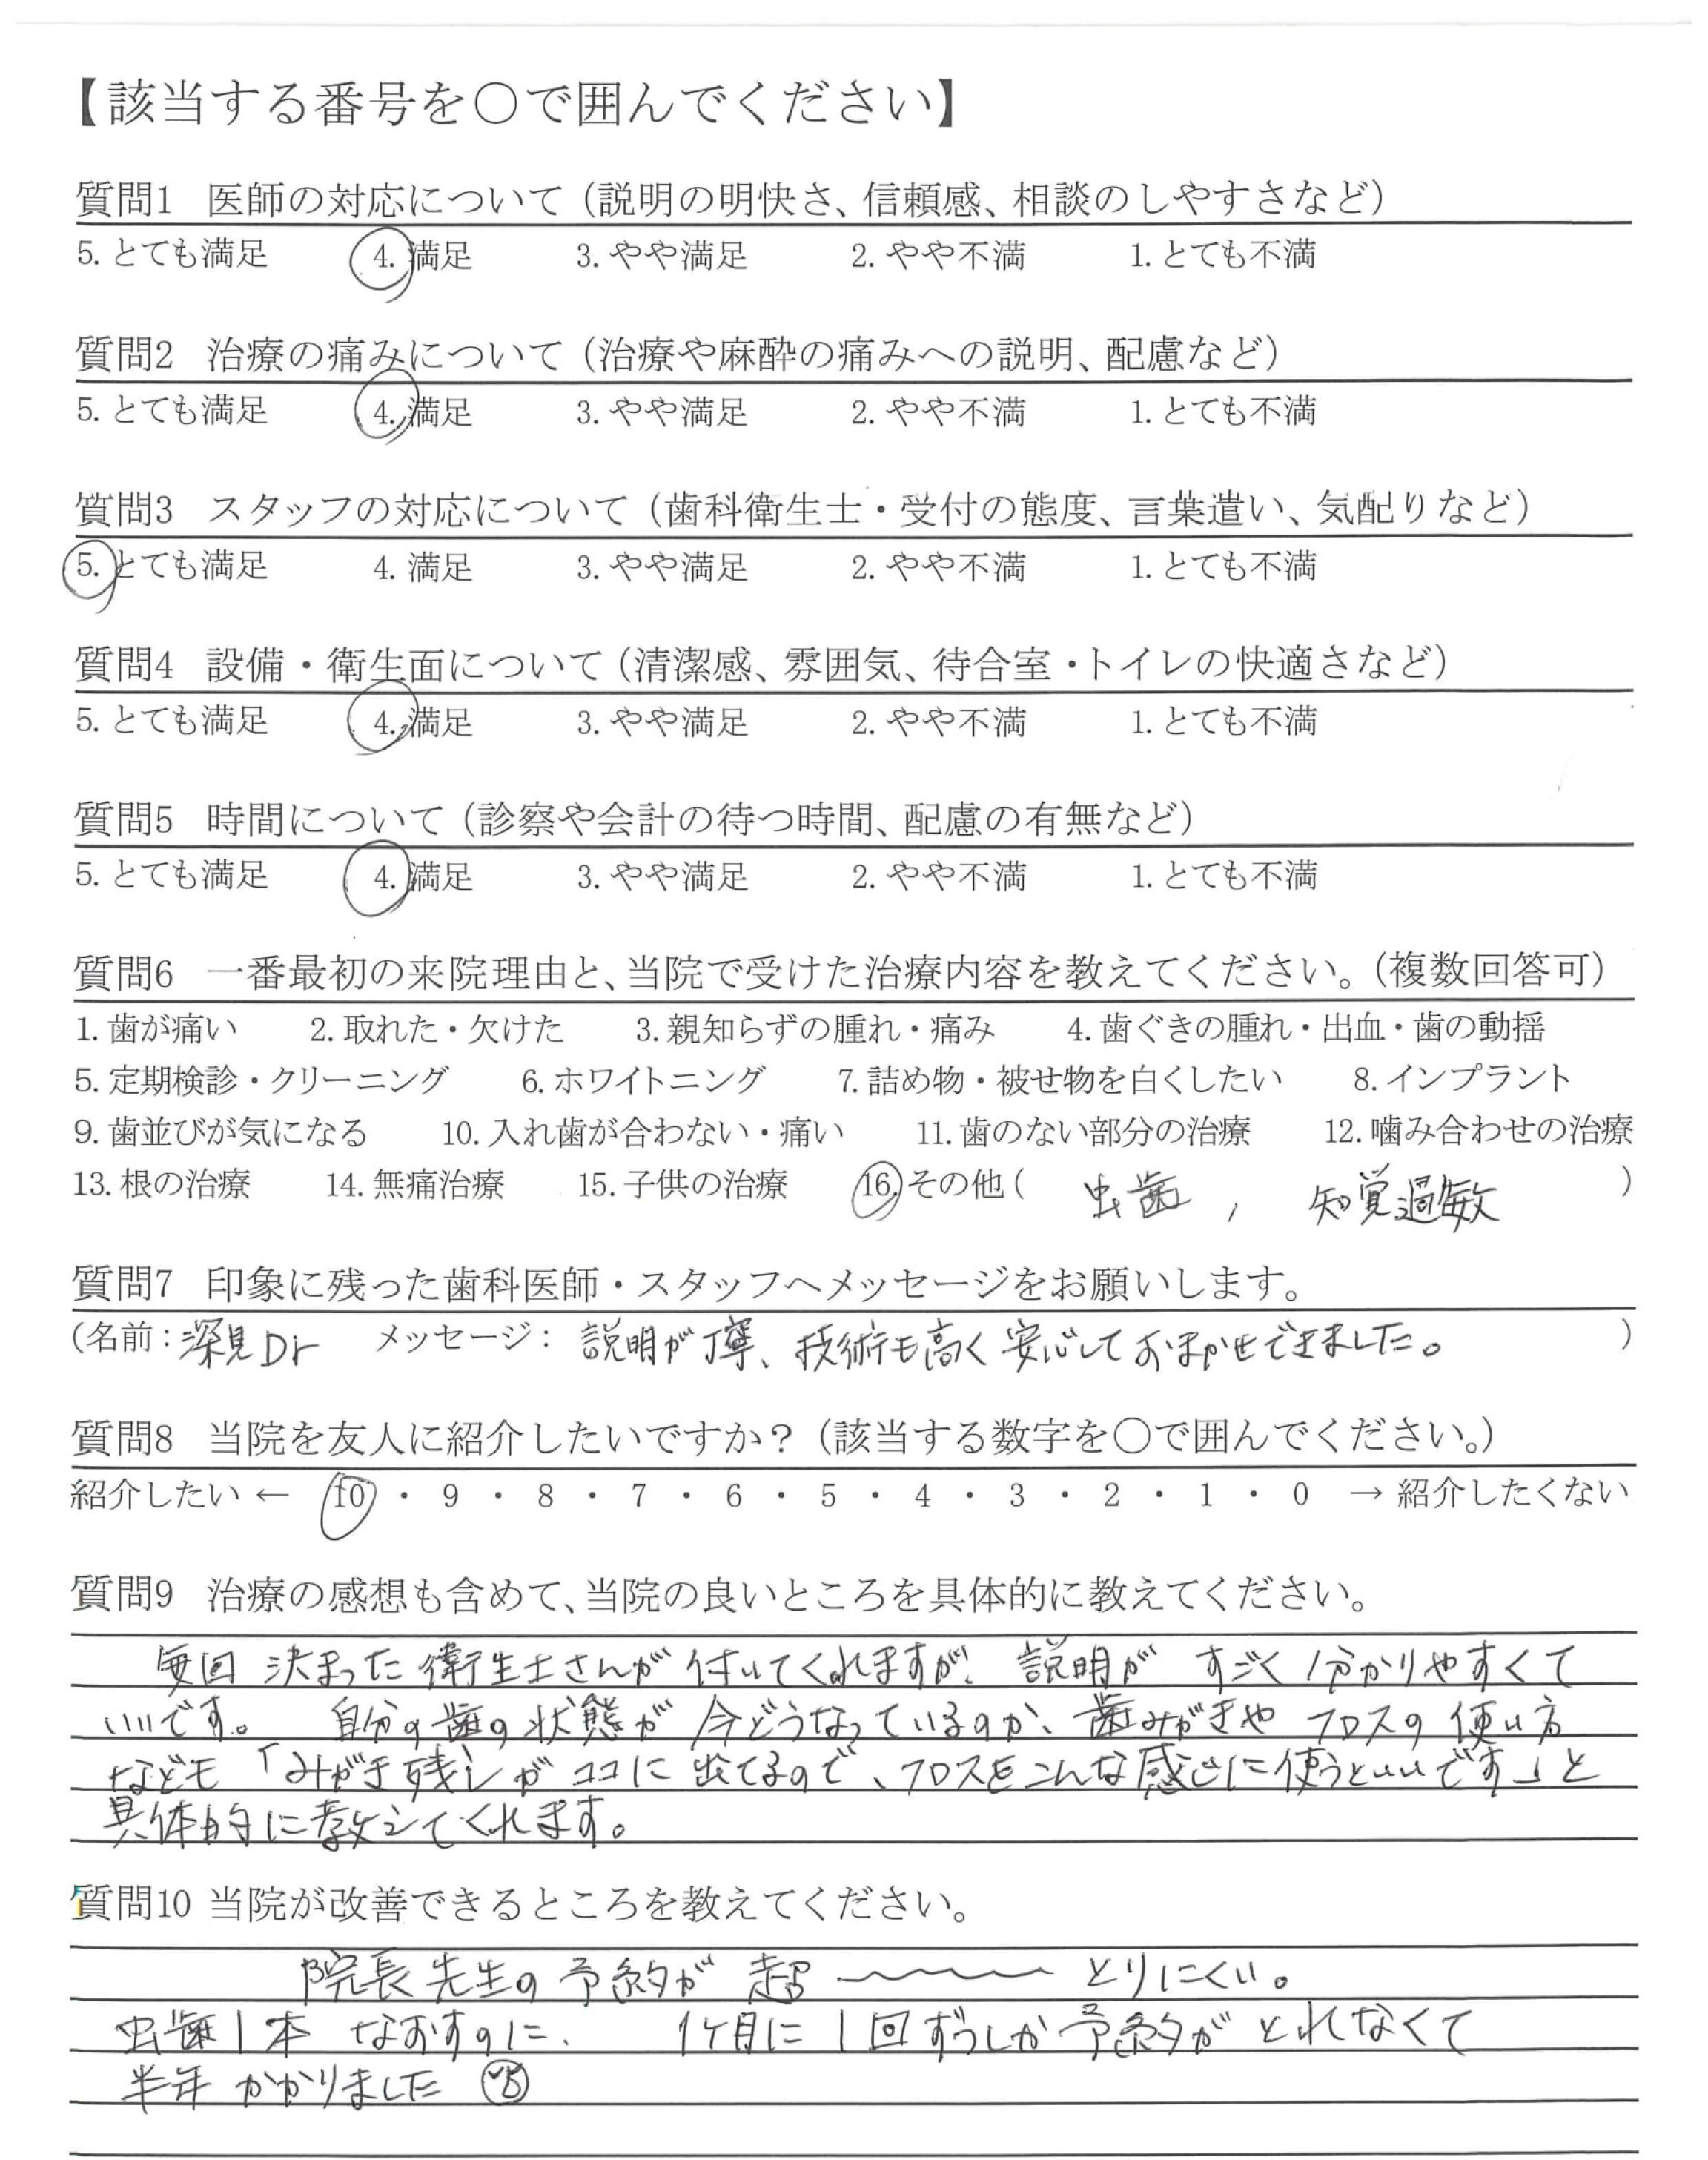 【該当する番号を○で囲んでください】
質問1 医師の対応について（説明の明快さ、信頼感、相談のしやすさなど）
5. とても満足 4. 満足 3. やや満足 2. やや不満 1. とても不満
質問2 治療の痛みについて（治療や麻酔の痛みへの説明、配慮など）
5. とても満足 4. 満足 3. やや満足 2. やや不満 1. とても不満
質問3 スタッフの対応について（歯科衛生士・受付の態度、言葉遣い、気配りなど）
5. とても満足 4. 満足 3. やや満足 2. やや不満 1. とても不満
質問4 設備・衛生面について（清潔感、雰囲気、待合室・トイレの快適さなど）
5. とても満足 4. 満足 3. やや満足 2. やや不満 1. とても不満
質問5 時間について（診察や会計の待つ時間、配慮の有無など）
5. とても満足 4. 満足 3. やや満足 2. やや不満 1. とても不満
質問6 一番最初の来院理由と、当院で受けた治療内容を教えてください。（複数回答可）
1. 歯が痛い 2. 取れた・欠けた 3. 親知らずの腫れ・痛み 4. 歯ぐきの腫れ・出血・歯の動揺
5. 定期検診・クリーニング 6. ホワイトニング 7. 詰め物・被せ物を白くしたい 8. インプラント
9. 歯並びが気になる 10. 入れ歯が合わない・痛い 11. 歯のない部分の治療 12. 噛み合わせの治療
13. 根の治療 14. 無痛治療 15. 子供の治療 16. その他（ 虫歯, 知覚過敏 ）
質問7 印象に残った歯科医師・スタッフへメッセージをお願いします。
（名前：深見Dr メッセージ： 説明が丁寧、技術も高く安心しておまかせできました。 ）
質問8 当院を友人に紹介したいですか？（該当する数字を○で囲んでください。）
紹介したい ← 10 ・ 9 ・ 8 ・ 7 ・ 6 ・ 5 ・ 4 ・ 3 ・ 2 ・ 1 ・ 0 → 紹介したくない
質問9 治療の感想も含めて、当院の良いところを具体的に教えてください。
毎回 決まった衛生士さんが付いてくれますが、説明が すごく分かりやすくて
いいです。 自分の歯の状態が今どうなっているのか、歯みがきや フロスの使い方
なども「みがき残しがココに出てるので、フロスをこんな感じに使うといいです」と
具体的に教えてくれます。
質問10 当院が改善できるところを教えてください。
院長先生の予約が 超〜〜〜 とりにくい。
虫歯1本 なおすのに、 1ヶ月に1回ずつしか予約がとれなくて
半年かかりました